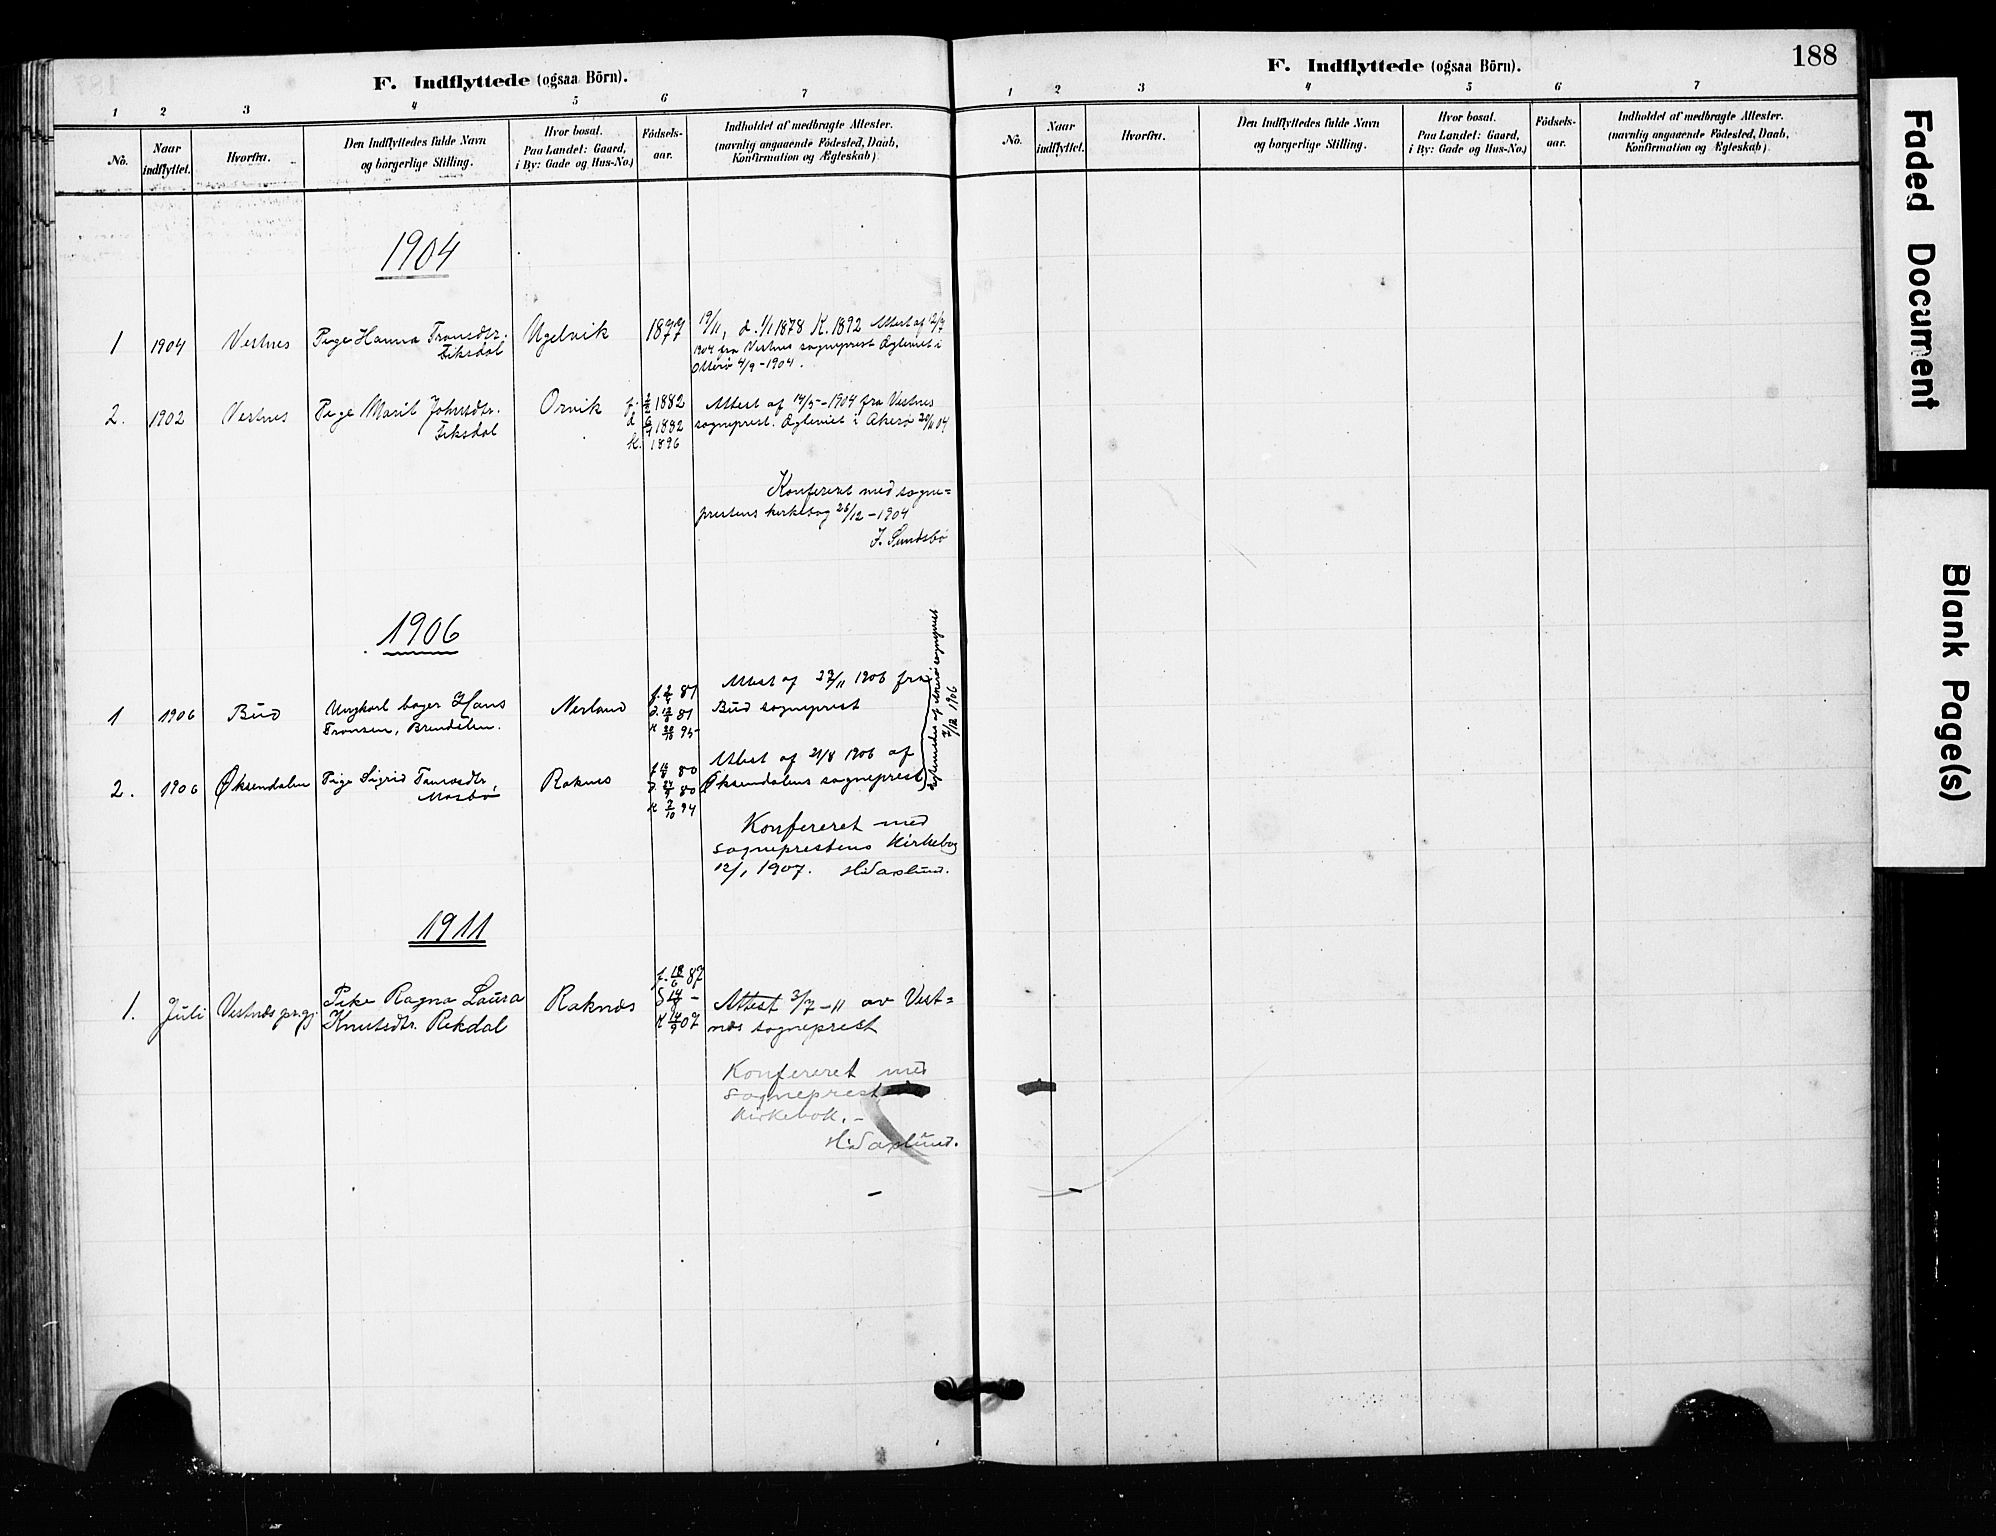 F. Indflyttede (ogsaa Börn).
1 2 3 4 5 6 7
No. Naar indflyttet. Hvorfra. Den Indflyttedes fulde Navn og borgerlige Stilling. Hvor bosat. Paa Landet: Gaard, i By: Gade og Hus-No.) Födsels-aar. Indholdet af medbragte Attester. (navnlig angaaende Födested, Daab, Konfirmation og Ægteskab).
1904
1 1904 Vestnes Pige Hanna Fransdtr. Ugelvik 1877 19/11, d. 1/1 1878 K. 1892 Attest af
Fiksdal 1904 fra Vestnes sogneprest Ægteviet i
Otterø 4/9-1904.
2. 1902 Vestnes Pige Marit Johnsdtr. Orvik f. 1882 Attest af 14/5-1904 fra Vestnes
Fiksdal d. 1882 sogneprest. Ægteviet i Akerø
K. 1896
Konfereret med sogne=
prestens kirkebog 26/12-1904
J. Sundsbø
1906
1 1906 Bud Ungkarl bager Hans Nerland f. 81 Attest af 27/11 1906 fra
Fransen, Brendelen. d. 81 Bud sogneprest
K 95
2. 1906 Øksendalen Pige Sigrid Raknes f. 80 Attest af 21/8 1906 af
Mosbø d. 80 Øksendalens sogneprest
K 2/10 94
Ægteviedes af Akerø sogneprest
7/12 1906
Konfereret med
sogneprestens Kirkebog
12/1 1907. H. Saxlund.
1911
1. Juli Vestnes prgj. Pike Ragna Laura Raknæs f. 18/6 87 Attest 3/7-11 av Vest=
Knutsdtr. Rekdal K 07 næs sogneprest
Konfereret med
sogneprest
Kirkebok.-
H. Saxlund.
188
F. Indflyttede (ogsaa Börn).
1 2 3 4 5 6 7
No. Naar indflyttet. Hvorfra. Den Indflyttedes fulde Navn og borgerlige Stilling. Hvor bosat. Paa Landet: Gaard, i By: Gade og Hus-No.) Födsels-aar. Indholdet af medbragte Attester. (navnlig angaaende Födested, Daab, Konfirmation og Ægteskab).
Faded Document
Blank Page(s)